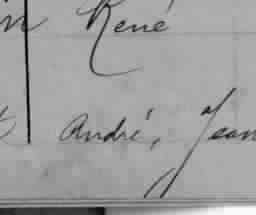 n René
t André, Jean